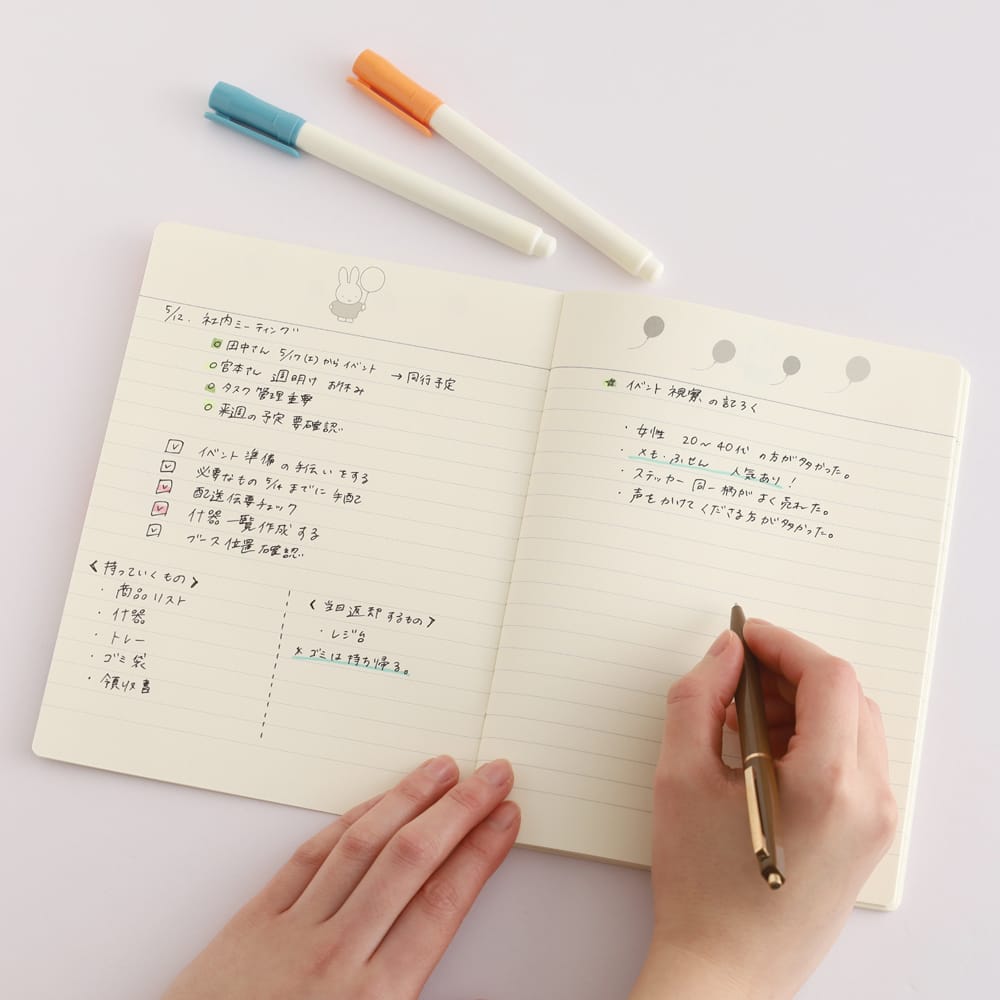 5/12. 社内ミーティング
田中さん 5/17(土)からイベント → 同行予定
宮本さん 週明け お休み
タスク管理重要
来週の予定 要確認
イベント準備の手伝いをする
必要なもの 5/14までに手配
配送伝票チェック
什器一覧作成する
ブース位置確認
〈持っていくもの〉
・商品リスト
・什器
・トレー
・ゴミ袋
・領収書
〈当日返却するもの〉
・レジ台
※ゴミは持ち帰る。
イベント視察の記ろく
・女性 20〜40代の方が多かった。
・メモ・ふせん 人気あり!
・ステッカー 同一柄がよく売れた。
・声をかけてくださる方が多かった。